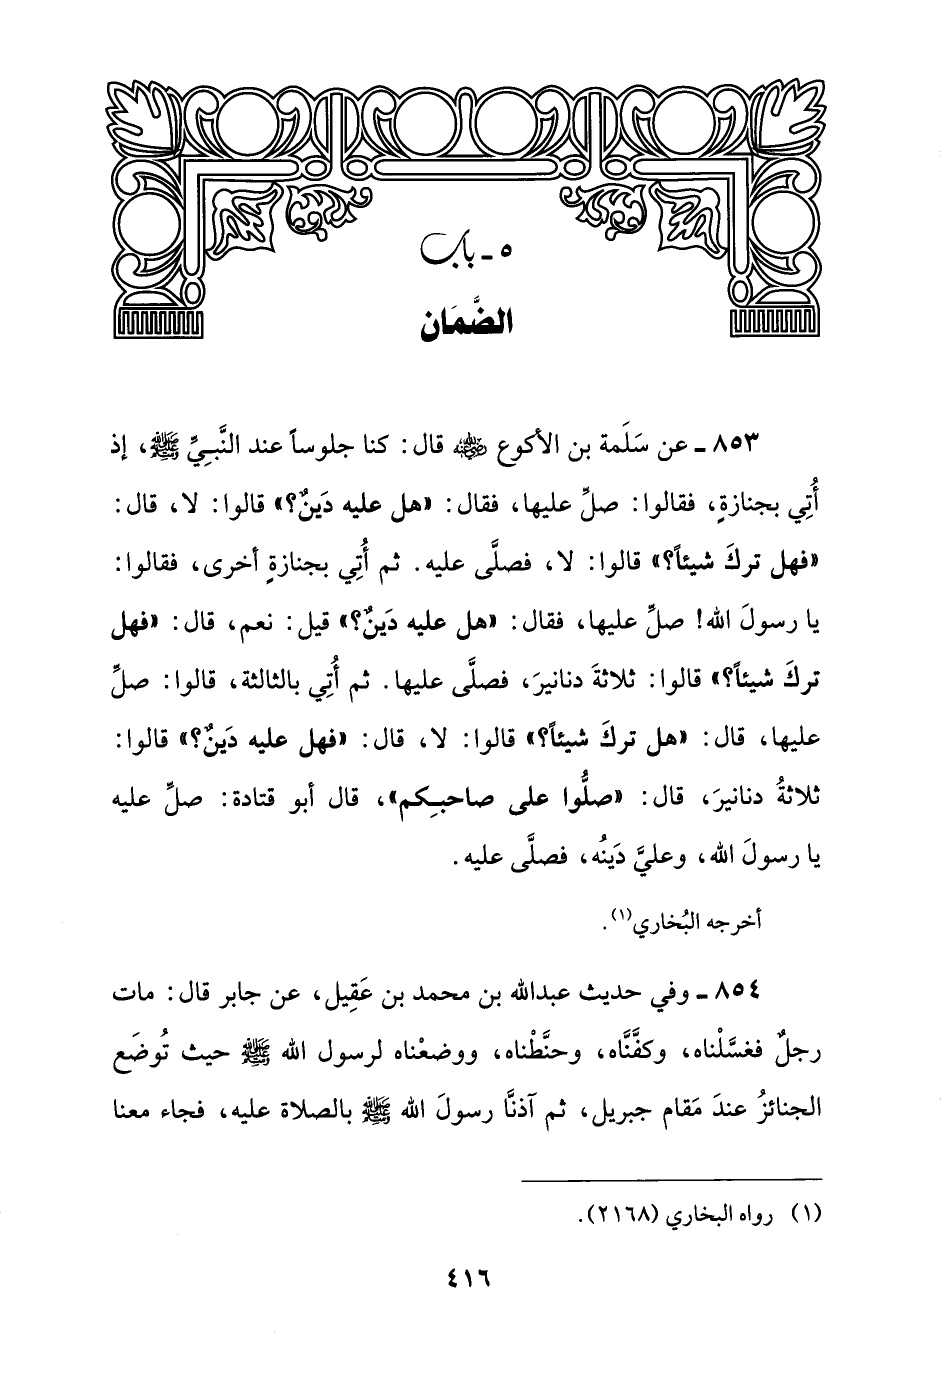 ٥ - باب
الضَّمَان
٨٥٣ - عن سَلَمة بن الأكوع ﷺ قال: كنا جلوساً عند النَّبيِّ ﷺ، إذ
أُتِي بجنازةٍ، فقالوا: صلِّ عليها، فقال: «هل عليه دَينٌ؟» قالوا: لا، قال:
«فهل تركَ شيئاً؟» قالوا: لا، فصلَّى عليه. ثم أُتِي بجنازةٍ أخرى، فقالوا:
يا رسولَ الله! صلِّ عليها، فقال: «هل عليه دَينٌ؟» قيل: نعم، قال: «فهل
تركَ شيئاً؟» قالوا: ثلاثةَ دنانيرَ، فصلَّى عليها. ثم أُتِي بالثالثة، قالوا: صلِّ
عليها، قال: «هل تركَ شيئاً؟» قالوا: لا، قال: «فهل عليه دَينٌ؟» قالوا:
ثلاثةُ دنانيرَ، قال: «صلُّوا على صاحبِكم»، قال أبو قتادة: صلِّ عليه
يا رسولَ الله، وعليَّ دَينُه، فصلَّى عليه.
أخرجه البُخاري(١).
٨٥٤ - وفي حديث عبدالله بن محمد بن عَقِيل، عن جابر قال: مات
رجلٌ فغسَّلْناه، وكفَّنَّاه، وحنَّطْناه، ووضعْناه لرسول الله ﷺ حيث تُوضَع
الجنائزُ عندَ مَقام جبريل، ثم آذنَّا رسولَ الله ﷺ بالصلاة عليه، فجاء معنا
(١) رواه البخاري (٢١٦٨).
٤١٦